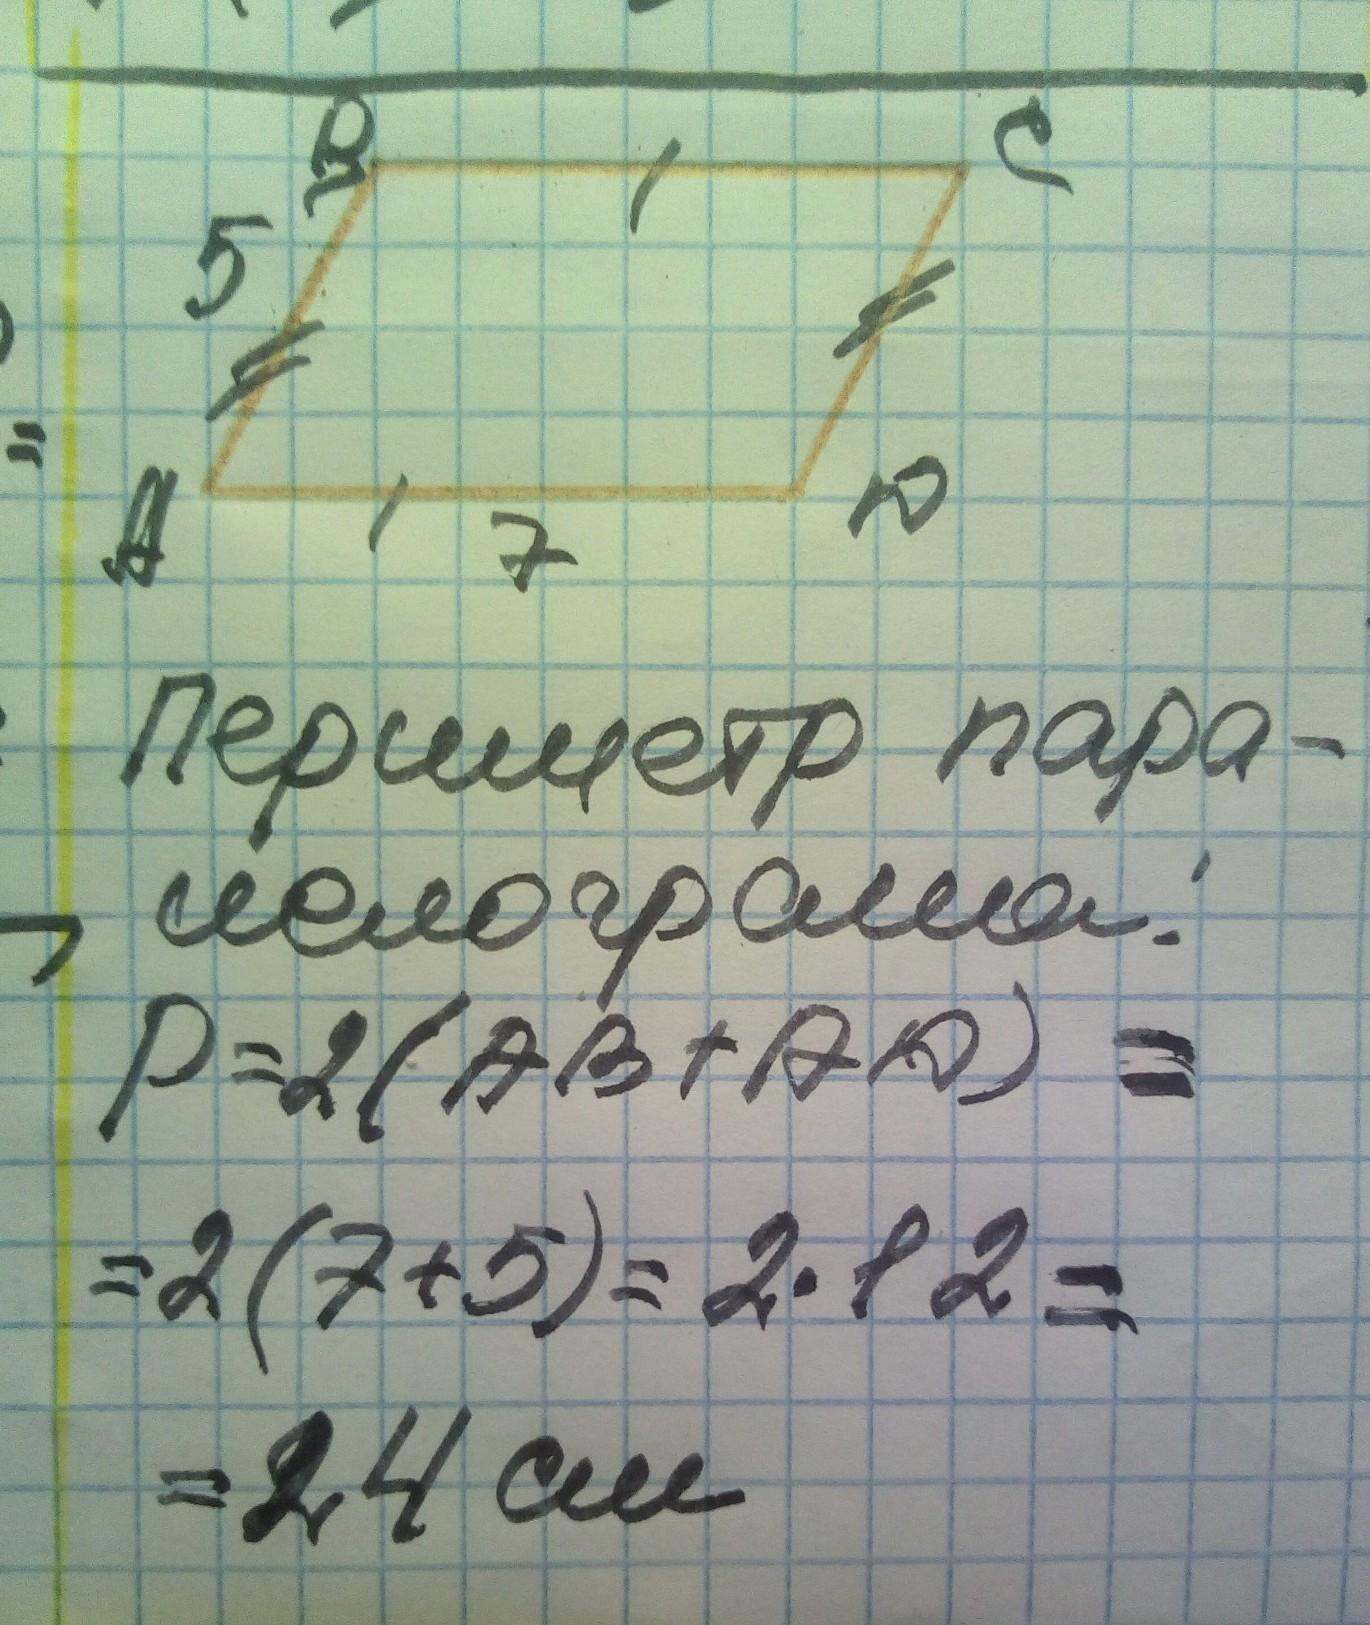 B C
5
A 7 D
Периметр пара-
лелограма:
P=2(AB+AD) =
=2(7+5)=2·12=
=24 см